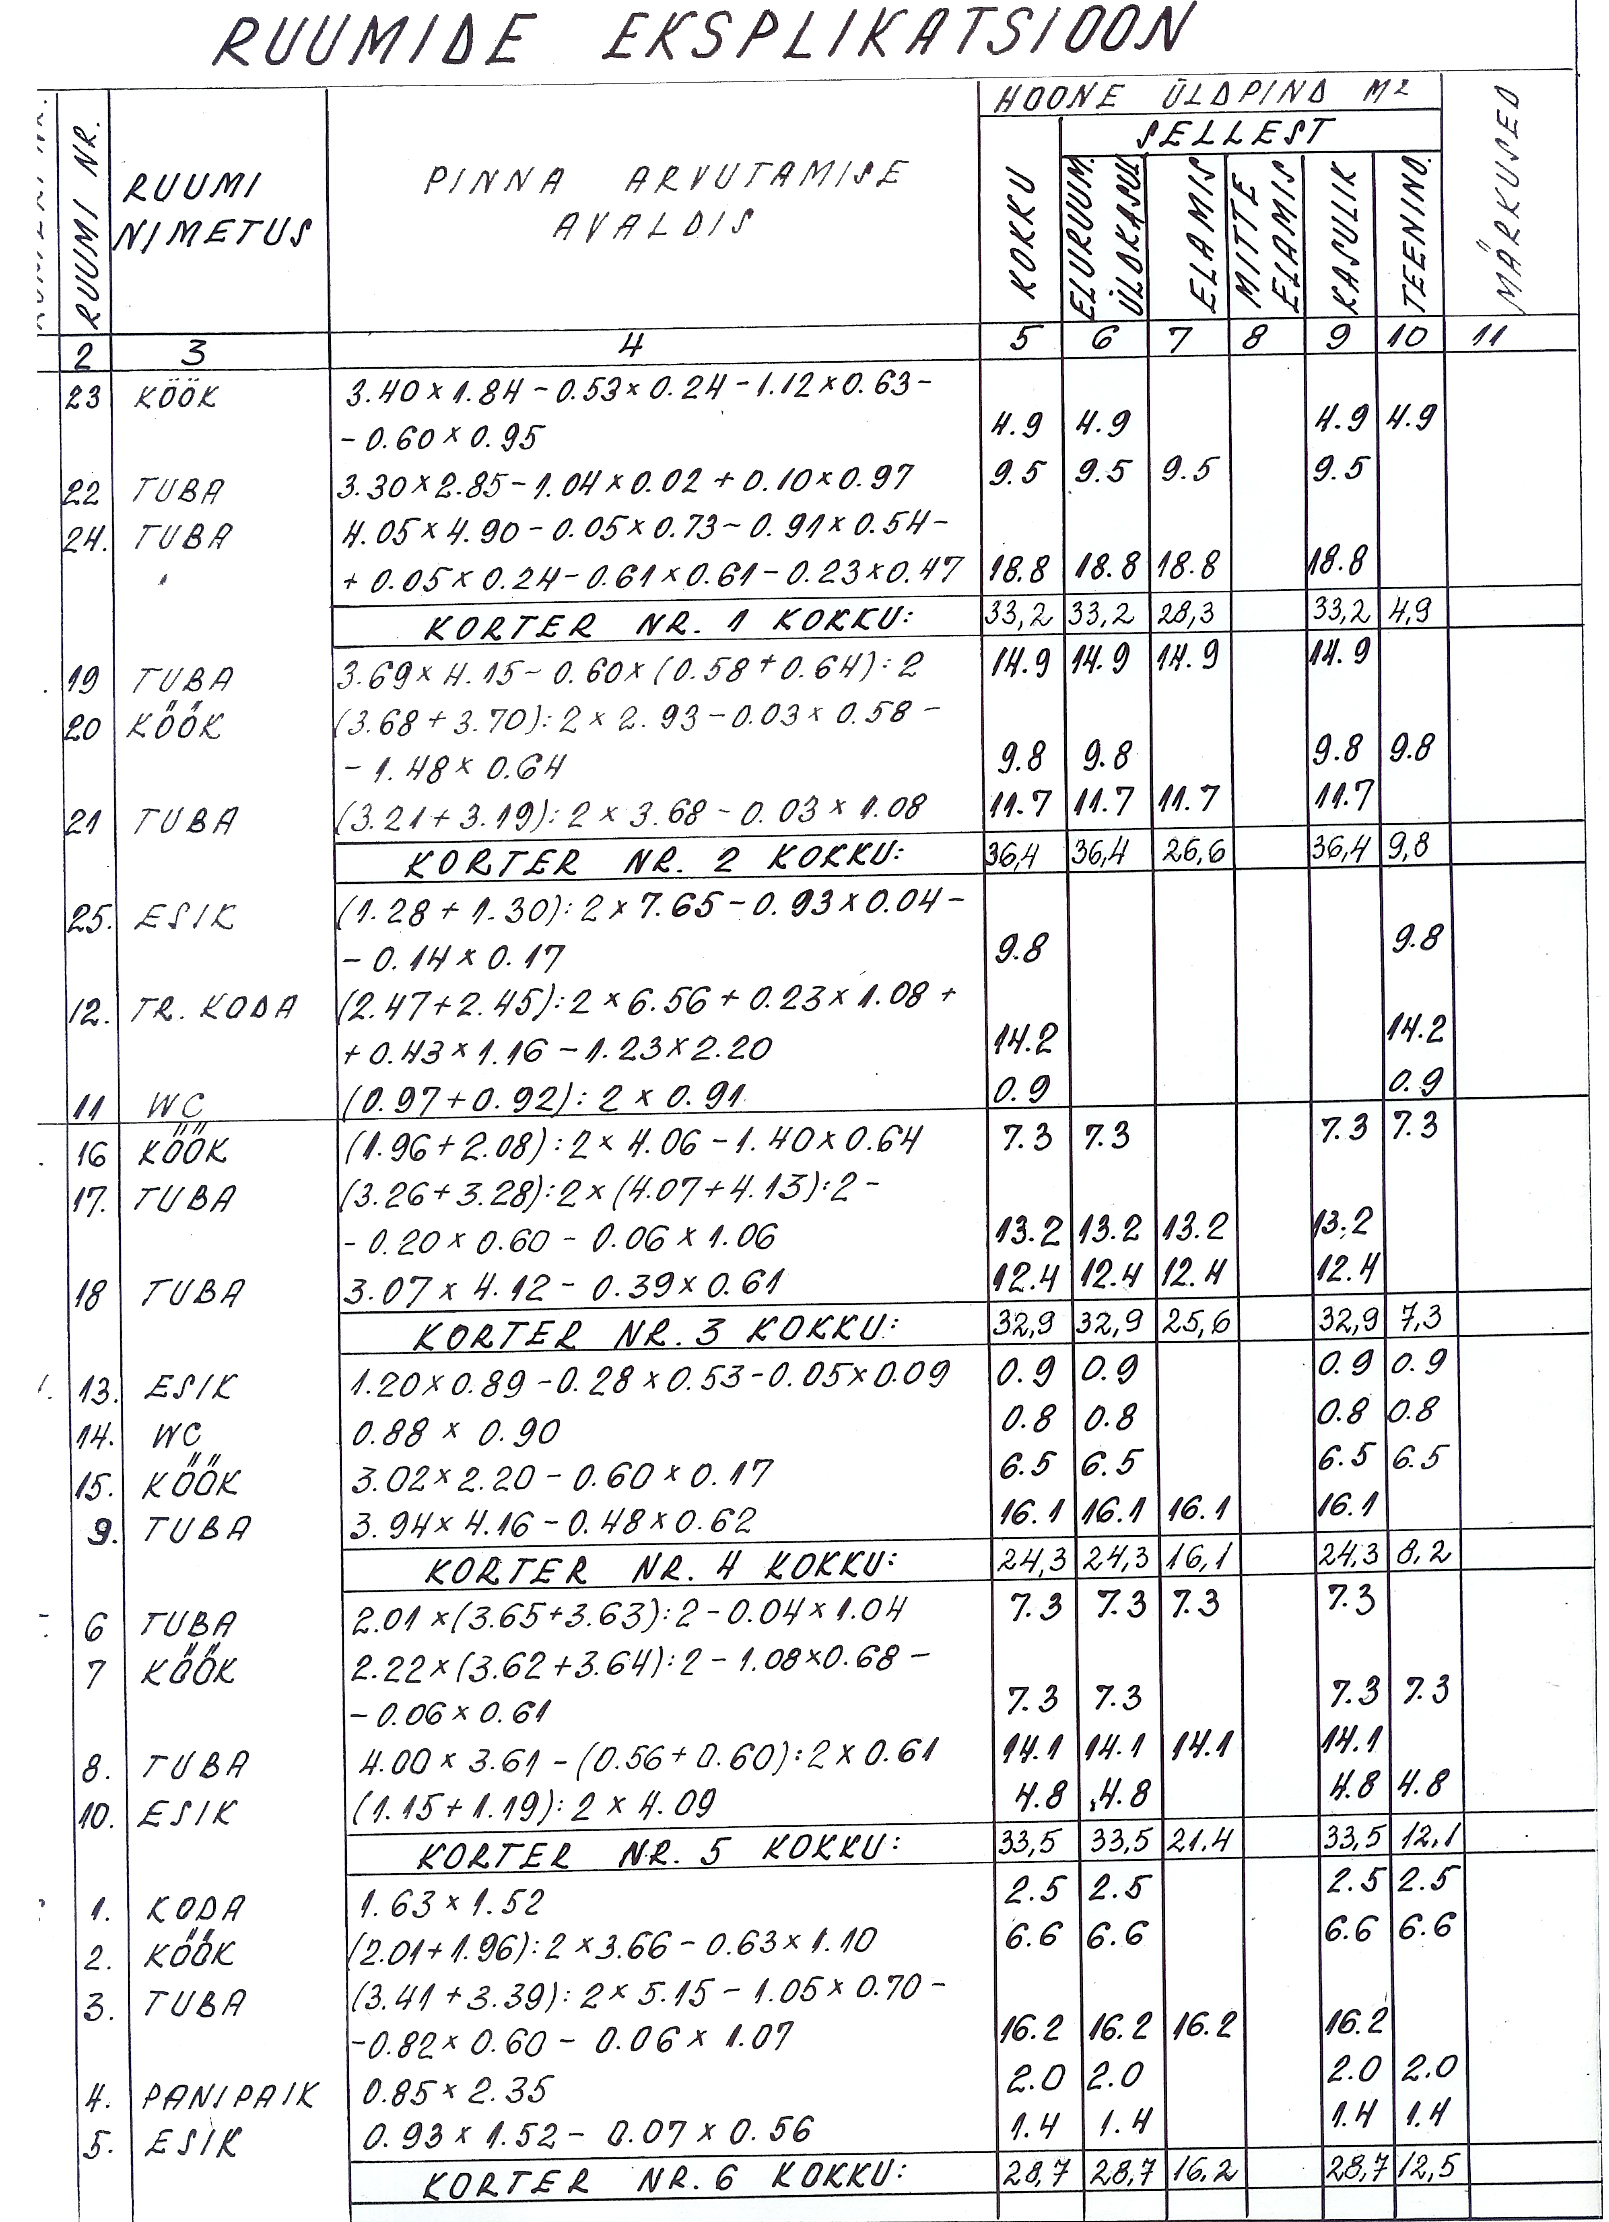 RUUMIDE EKSPLIKATSIOON
RUUMI NR.
RUUMI
NIMETUS
PINNA ARVUTAMISE
AVALDIS
HOONE ÜLDPIND M2
SELLEST
KOKKU
ELURUUM.
ÜLDKASUL
ELAMIS
MITTE
ELAMIS
KASULIK
TEENIND.
MÄRKUSED
2 3 4 5 6 7 8 9 10 11
23 KÖÖK 3.40 × 1.84 - 0.53 × 0.24 - 1.12 × 0.63 -
- 0.60 × 0.95 4.9 4.9 4.9 4.9
22 TUBA 3.30 × 2.85 - 1.04 × 0.02 + 0.10 × 0.97 9.5 9.5 9.5 9.5
24. TUBA 4.05 × 4.90 - 0.05 × 0.73 - 0.91 × 0.54 -
+ 0.05 × 0.24 - 0.61 × 0.61 - 0.23 × 0.47 18.8 18.8 18.8 18.8
KORTER NR. 1 KOKKU: 33,2 33,2 28,3 33,2 4,9
19 TUBA 3.69 × 4.15 - 0.60 × (0.58 + 0.64) : 2 14.9 14.9 14.9 14.9
20 KÖÖK (3.68 + 3.70) : 2 × 2.93 - 0.03 × 0.58 -
- 1.48 × 0.64 9.8 9.8 9.8 9.8
21 TUBA (3.21 + 3.19) : 2 × 3.68 - 0.03 × 1.08 11.7 11.7 11.7 11.7
KORTER NR. 2 KOKKU: 36,4 36,4 26,6 36,4 9,8
25. ESIK (1.28 + 1.30) : 2 × 7.65 - 0.93 × 0.04 -
- 0.14 × 0.17 9.8 9.8
12. TR. KODA (2.47 + 2.45) : 2 × 6.56 + 0.23 × 1.08 +
+ 0.43 × 1.16 - 1.23 × 2.20 14.2 14.2
11 WC (0.97 + 0.92) : 2 × 0.91 0.9 0.9
16 KÖÖK (1.96 + 2.08) : 2 × 4.06 - 1.40 × 0.64 7.3 7.3 7.3 7.3
17. TUBA (3.26 + 3.28) : 2 × (4.07 + 4.13) : 2 -
- 0.20 × 0.60 - 0.06 × 1.06 13.2 13.2 13.2 13.2
18 TUBA 3.07 × 4.12 - 0.39 × 0.61 12.4 12.4 12.4 12.4
KORTER NR. 3 KOKKU: 32,9 32,9 25,6 32,9 7,3
13. ESIK 1.20 × 0.89 - 0.28 × 0.53 - 0.05 × 0.09 0.9 0.9 0.9 0.9
14. WC 0.88 × 0.90 0.8 0.8 0.8 0.8
15. KÖÖK 3.02 × 2.20 - 0.60 × 0.17 6.5 6.5 6.5 6.5
9. TUBA 3.94 × 4.16 - 0.48 × 0.62 16.1 16.1 16.1 16.1
KORTER NR. 4 KOKKU: 24,3 24,3 16,1 24,3 8,2
6 TUBA 2.01 × (3.65 + 3.63) : 2 - 0.04 × 1.04 7.3 7.3 7.3 7.3
7 KÖÖK 2.22 × (3.62 + 3.64) : 2 - 1.08 × 0.68 -
- 0.06 × 0.61 7.3 7.3 7.3 7.3
8. TUBA 4.00 × 3.61 - (0.56 + 0.60) : 2 × 0.61 14.1 14.1 14.1 14.1
10. ESIK (1.15 + 1.19) : 2 × 4.09 4.8 4.8 4.8 4.8
KORTER NR. 5 KOKKU: 33,5 33,5 21.4 33,5 12,1
1. KODA 1.63 × 1.52 2.5 2.5 2.5 2.5
2. KÖÖK (2.01 + 1.96) : 2 × 3.66 - 0.63 × 1.10 6.6 6.6 6.6 6.6
3. TUBA (3.41 + 3.39) : 2 × 5.15 - 1.05 × 0.70 -
- 0.82 × 0.60 - 0.06 × 1.07 16.2 16.2 16.2 16.2
4. PANIPAIK 0.85 × 2.35 2.0 2.0 2.0 2.0
5. ESIK 0.93 × 1.52 - 0.07 × 0.56 1.4 1.4 1.4 1.4
KORTER NR. 6 KOKKU: 28,7 28,7 16,2 28,7 12,5